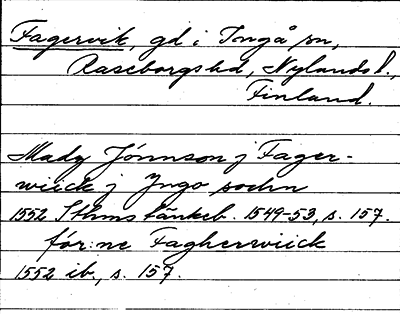 Fagervik, gd i Ingå sn,
Raseborgs hd, Nylands l.,
Finland.
Mady Jónnson j Fager-
wiick j Yngo sochn
1552 Sthms tänkeb. 1549-53, s. 157.
för:ne Fagherwiick
1552 ib., s. 157.